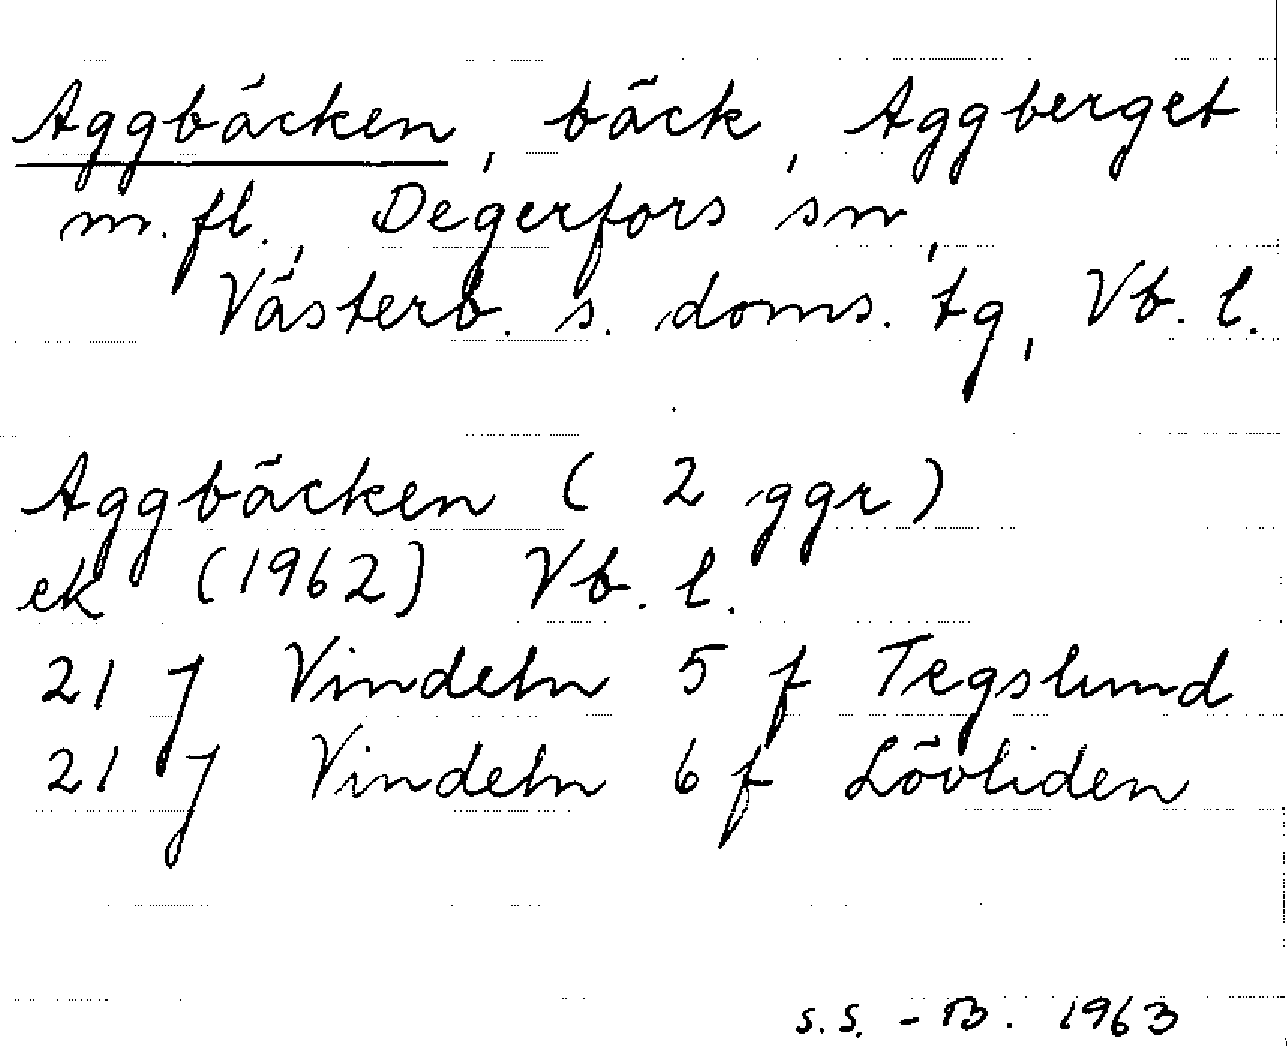 Aggbäcken, bäck, Aggberget
m.fl., Degerfors sn,
Västerb. s. doms. tg, Vb. l.
Aggbäcken (2 ggr)
ek (1962) Vb. l.
21 J Vindeln 5 f Tegslund
21 J Vindeln 6 f Lövliden
s.s. - B. 1963